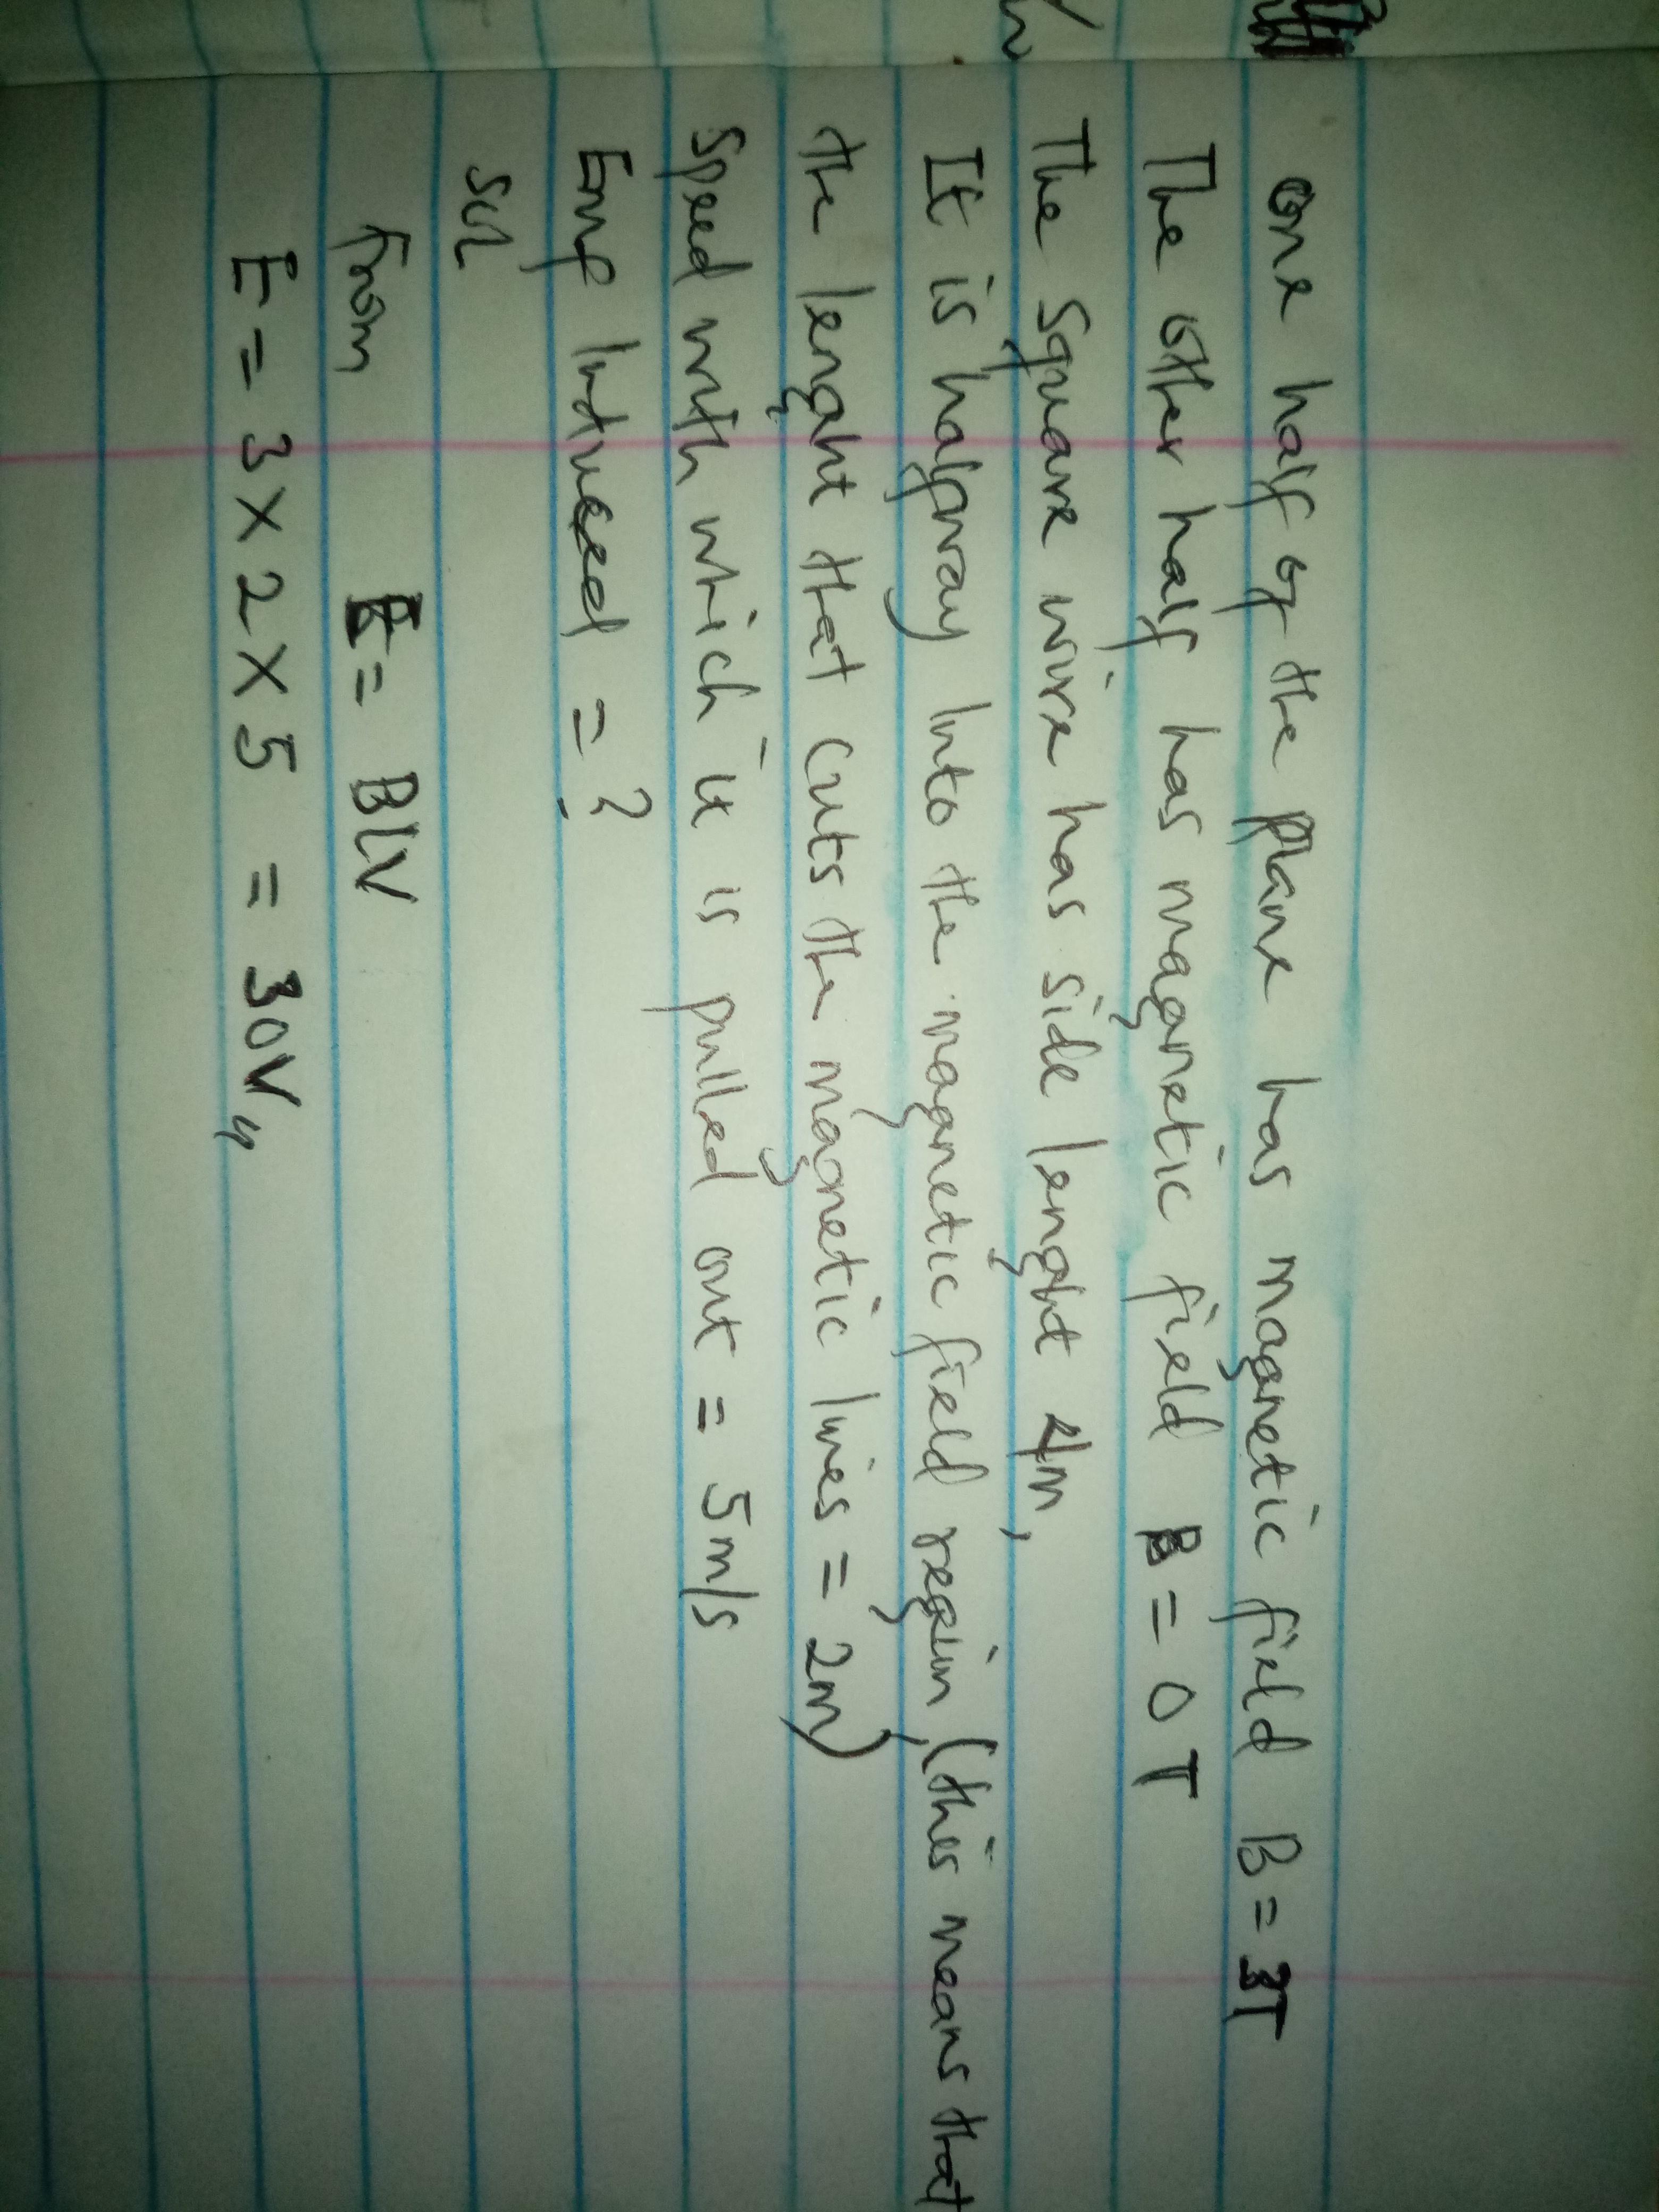 one half of the plane has magnetic field B = 3T
The other half has magnetic field B = 0 T
The square wire has side lenght 4m,
It is halfway into the magnetic field region (this means that
the lenght that cuts the magnetic lines = 2m)
Speed with which it is pulled out = 5m/s
Emf Induced = ?
Sol
from E = BLV
E = 3 X 2 X 5 = 30V,,